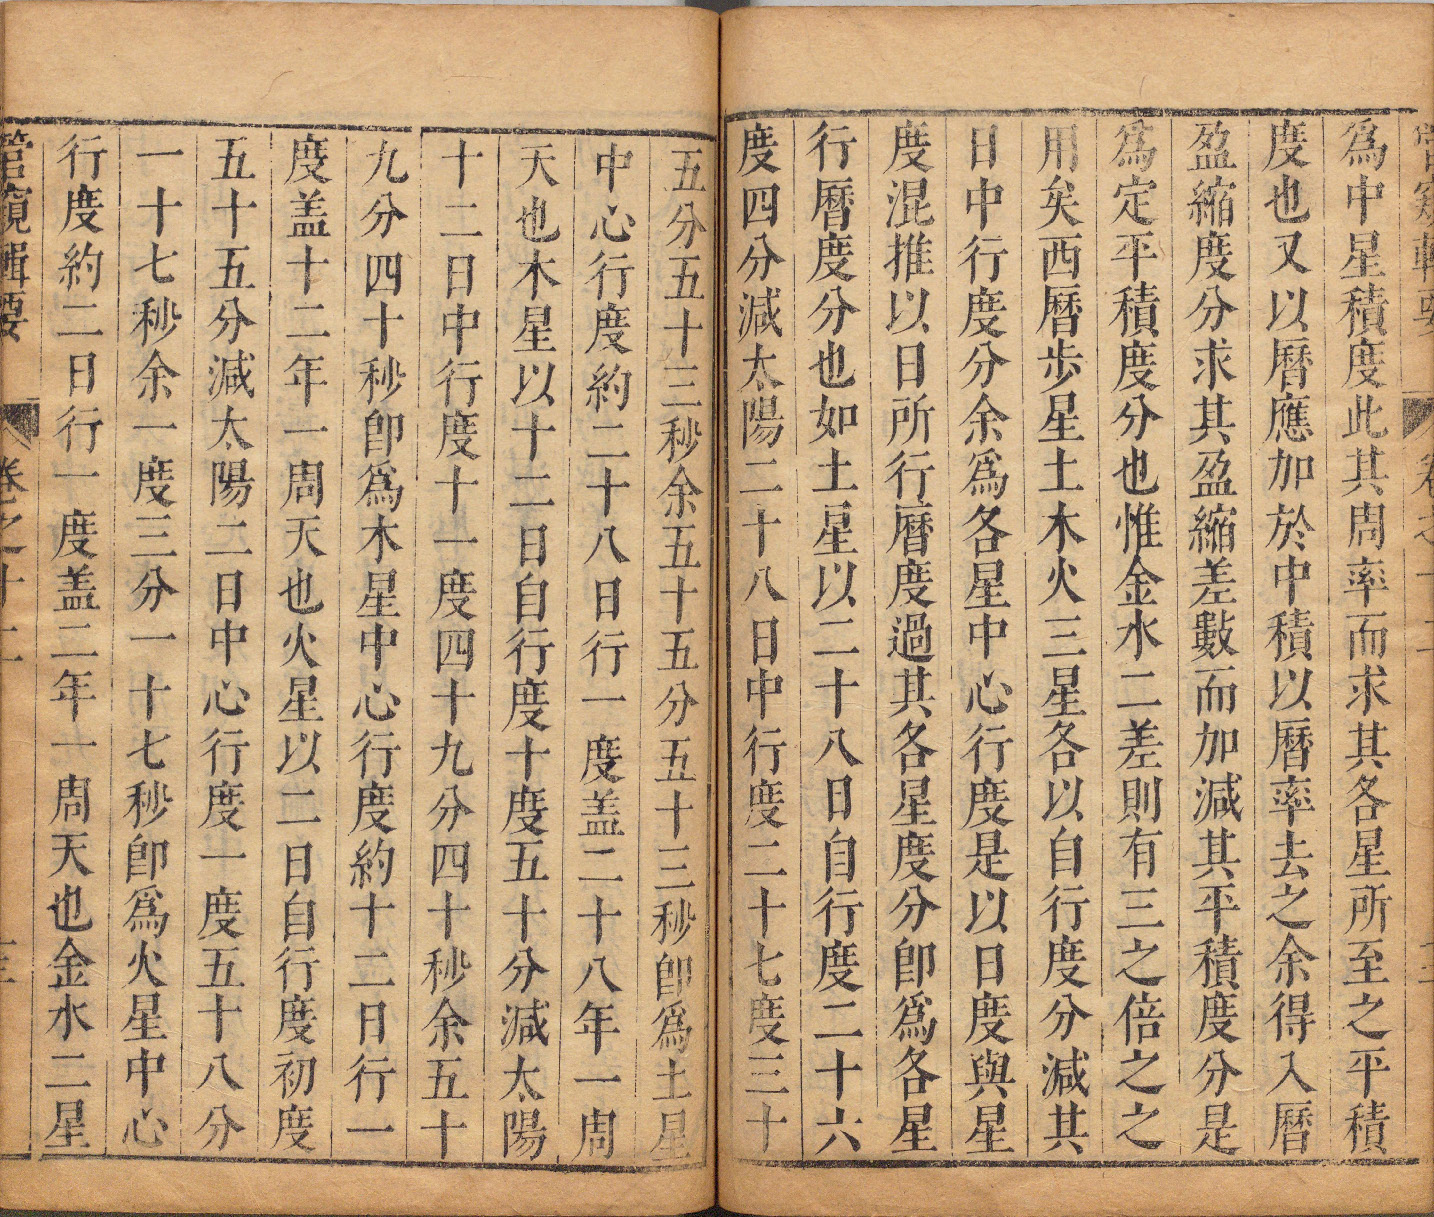 為中星積度此其周率而求其各星所至之平積
度也又以曆應加於中積以曆率去之余得入曆
盈縮度分求其盈縮差數而加減其平積度分是
為定平積度分也惟金水二差則有三之倍之之
用矣西曆步星土木火三星各以自行度分減其
日中行度分余爲各星中心行度是以日度與星
度混推以日所行曆度過其各星度分卽爲各星
行曆度分也如土星以二十八日自行度二十六
度四分減太陽二十八日中行度二十七度三十
五分五十三秒余五十五分五十三秒卽爲土星
中心行度約二十八日行一度盖二十八年一周
天也木星以十二日自行度十度五十分減太陽
十二日中行度十一度四十九分四十秒余五十
九分四十秒卽爲木星中心行度約十二日行一
度盖十二年一周天也火星以二日自行度初度
五十五分減太陽二日中心行度一度五十八分
一十七秒余一度三分一十七秒卽爲火星中心
行度約二日行一度盖二年一周天也金水二星
管窺輯要 卷之十二